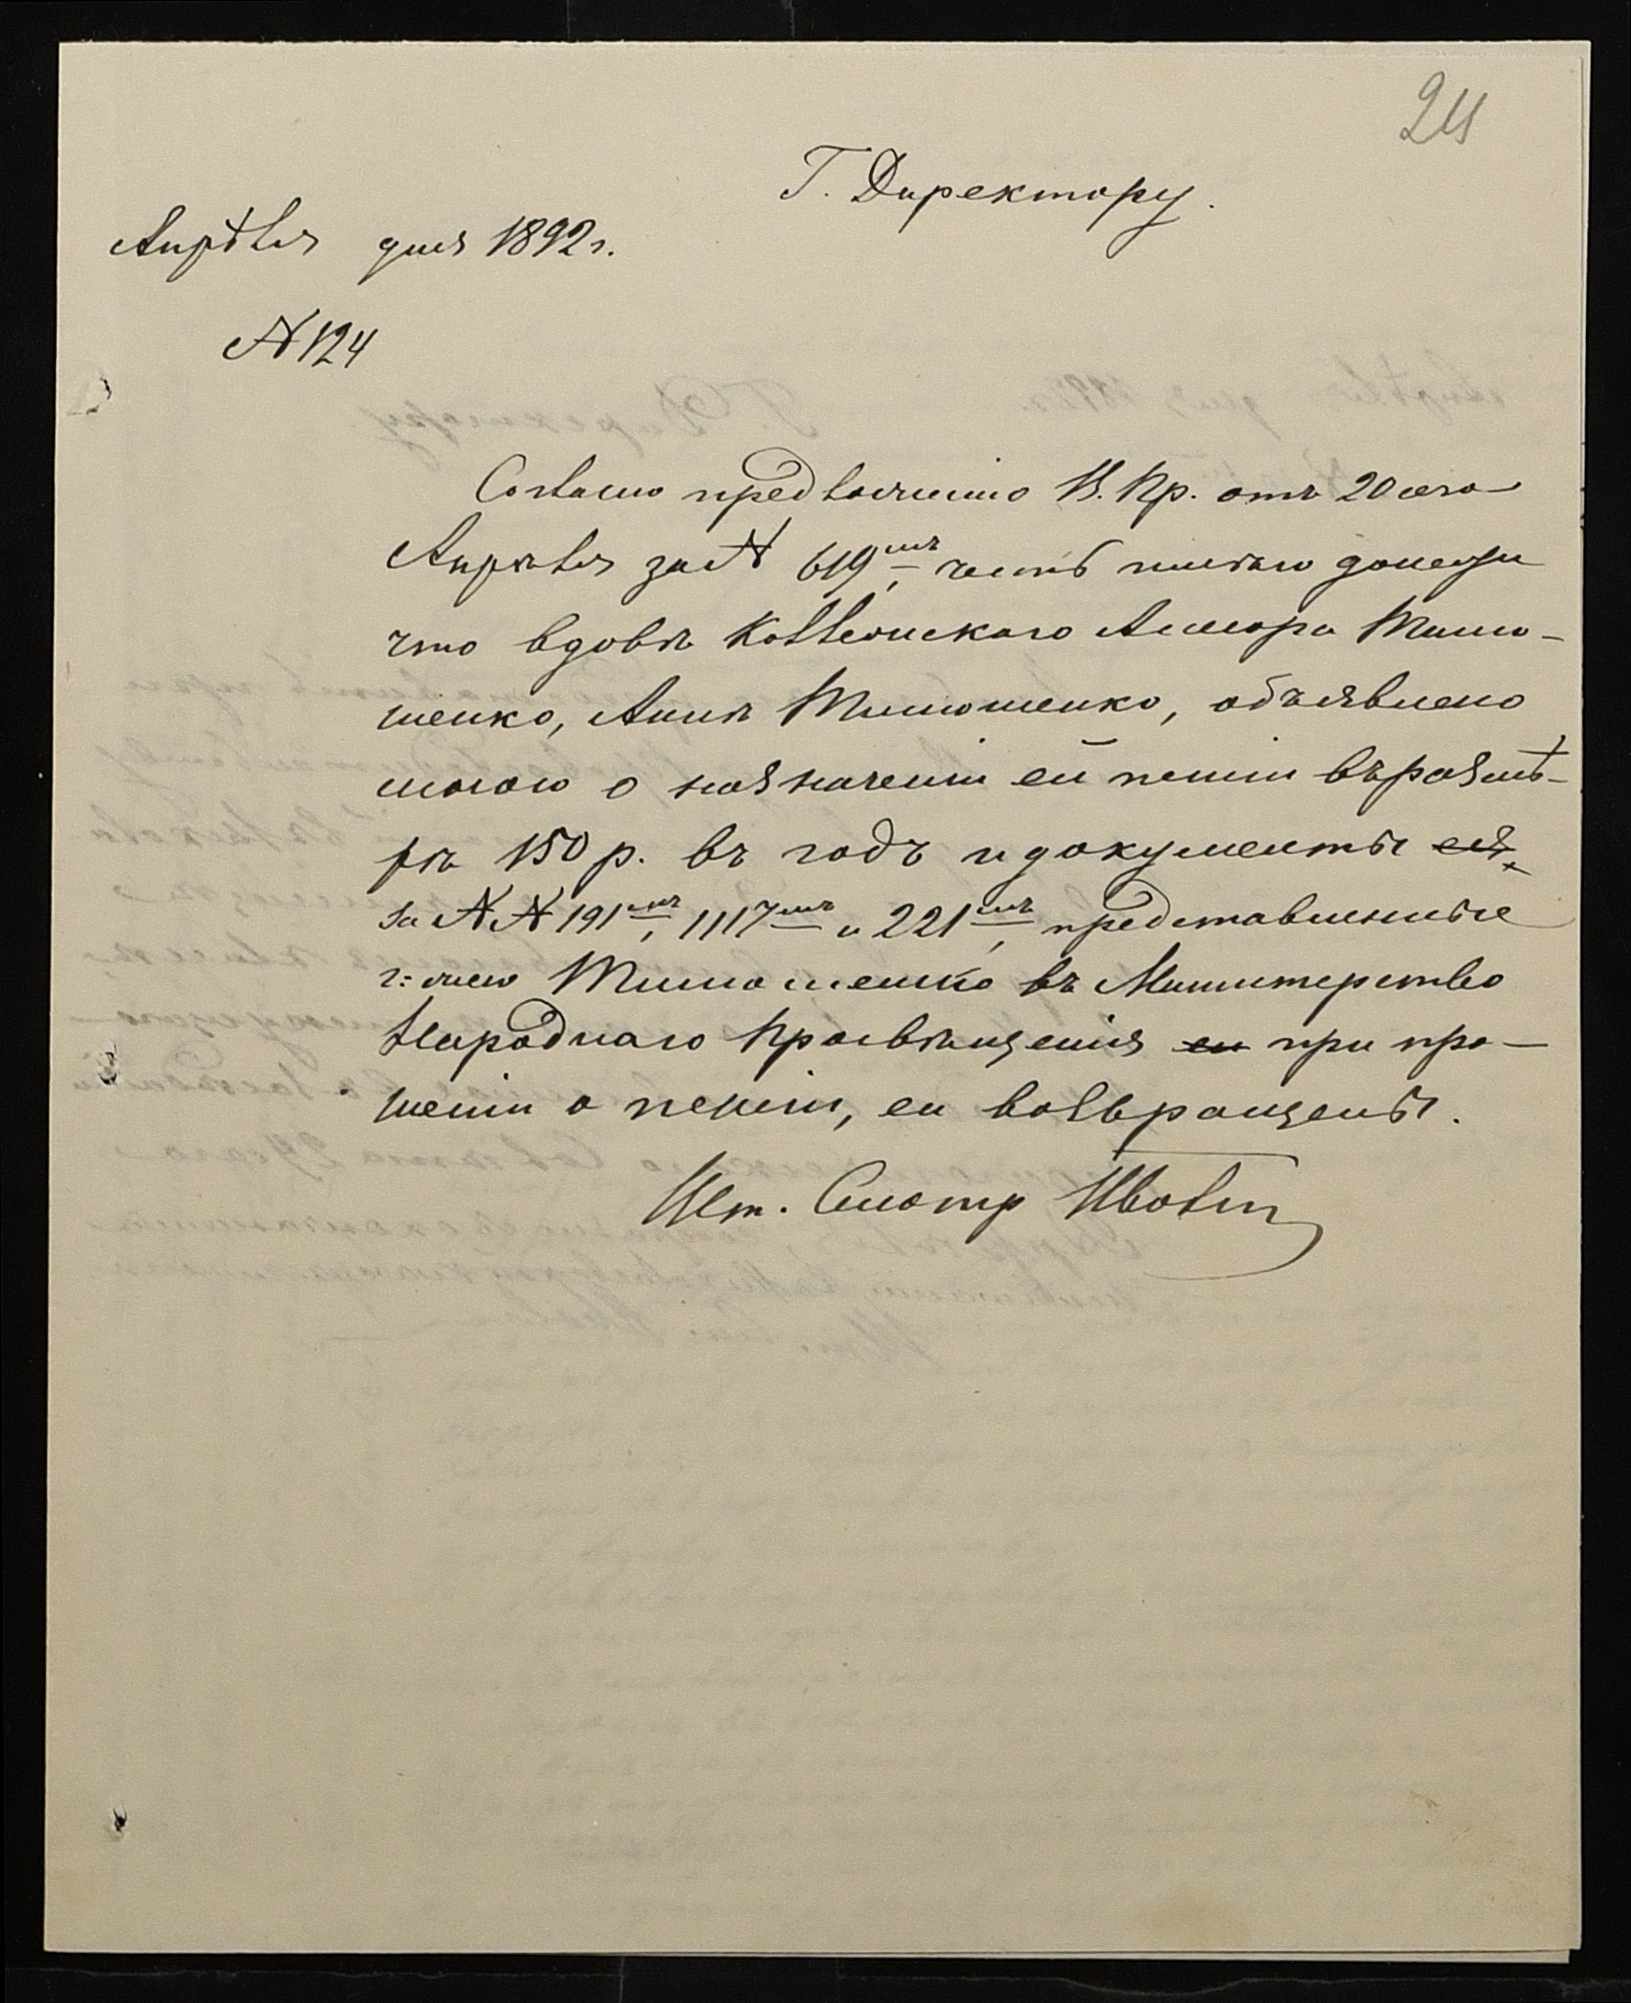 24
Г. Директору.
Апрѣля дня 1892 г.
№ 124
Согласно предложенію В. Пр. отъ 20 сего
Апрѣля за № 619мъ, честь имѣю донести
что вдовѣ Коллежскаго Ассесора Тимо-
шенко, Аннѣ Тимошенко, объявлено
мною о назначеніи ей пенсіи въ размѣ-
рѣ 150 р. въ годъ и документы ея
за №№ 191мъ, 1117мъ и 221мъ, представленные
г-жею Тимошенко въ Министерство
Народнаго Просвѣщенія ею при про-
шеніи о пенсіи, ей возвращены.
Шт. Смотр